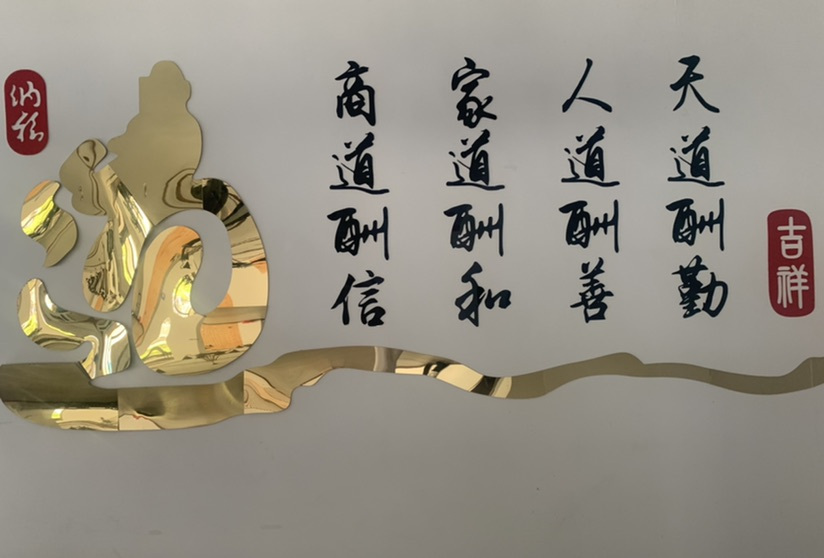 天道酬勤
人道酬善
家道酬和
商道酬信
吉祥
纳福